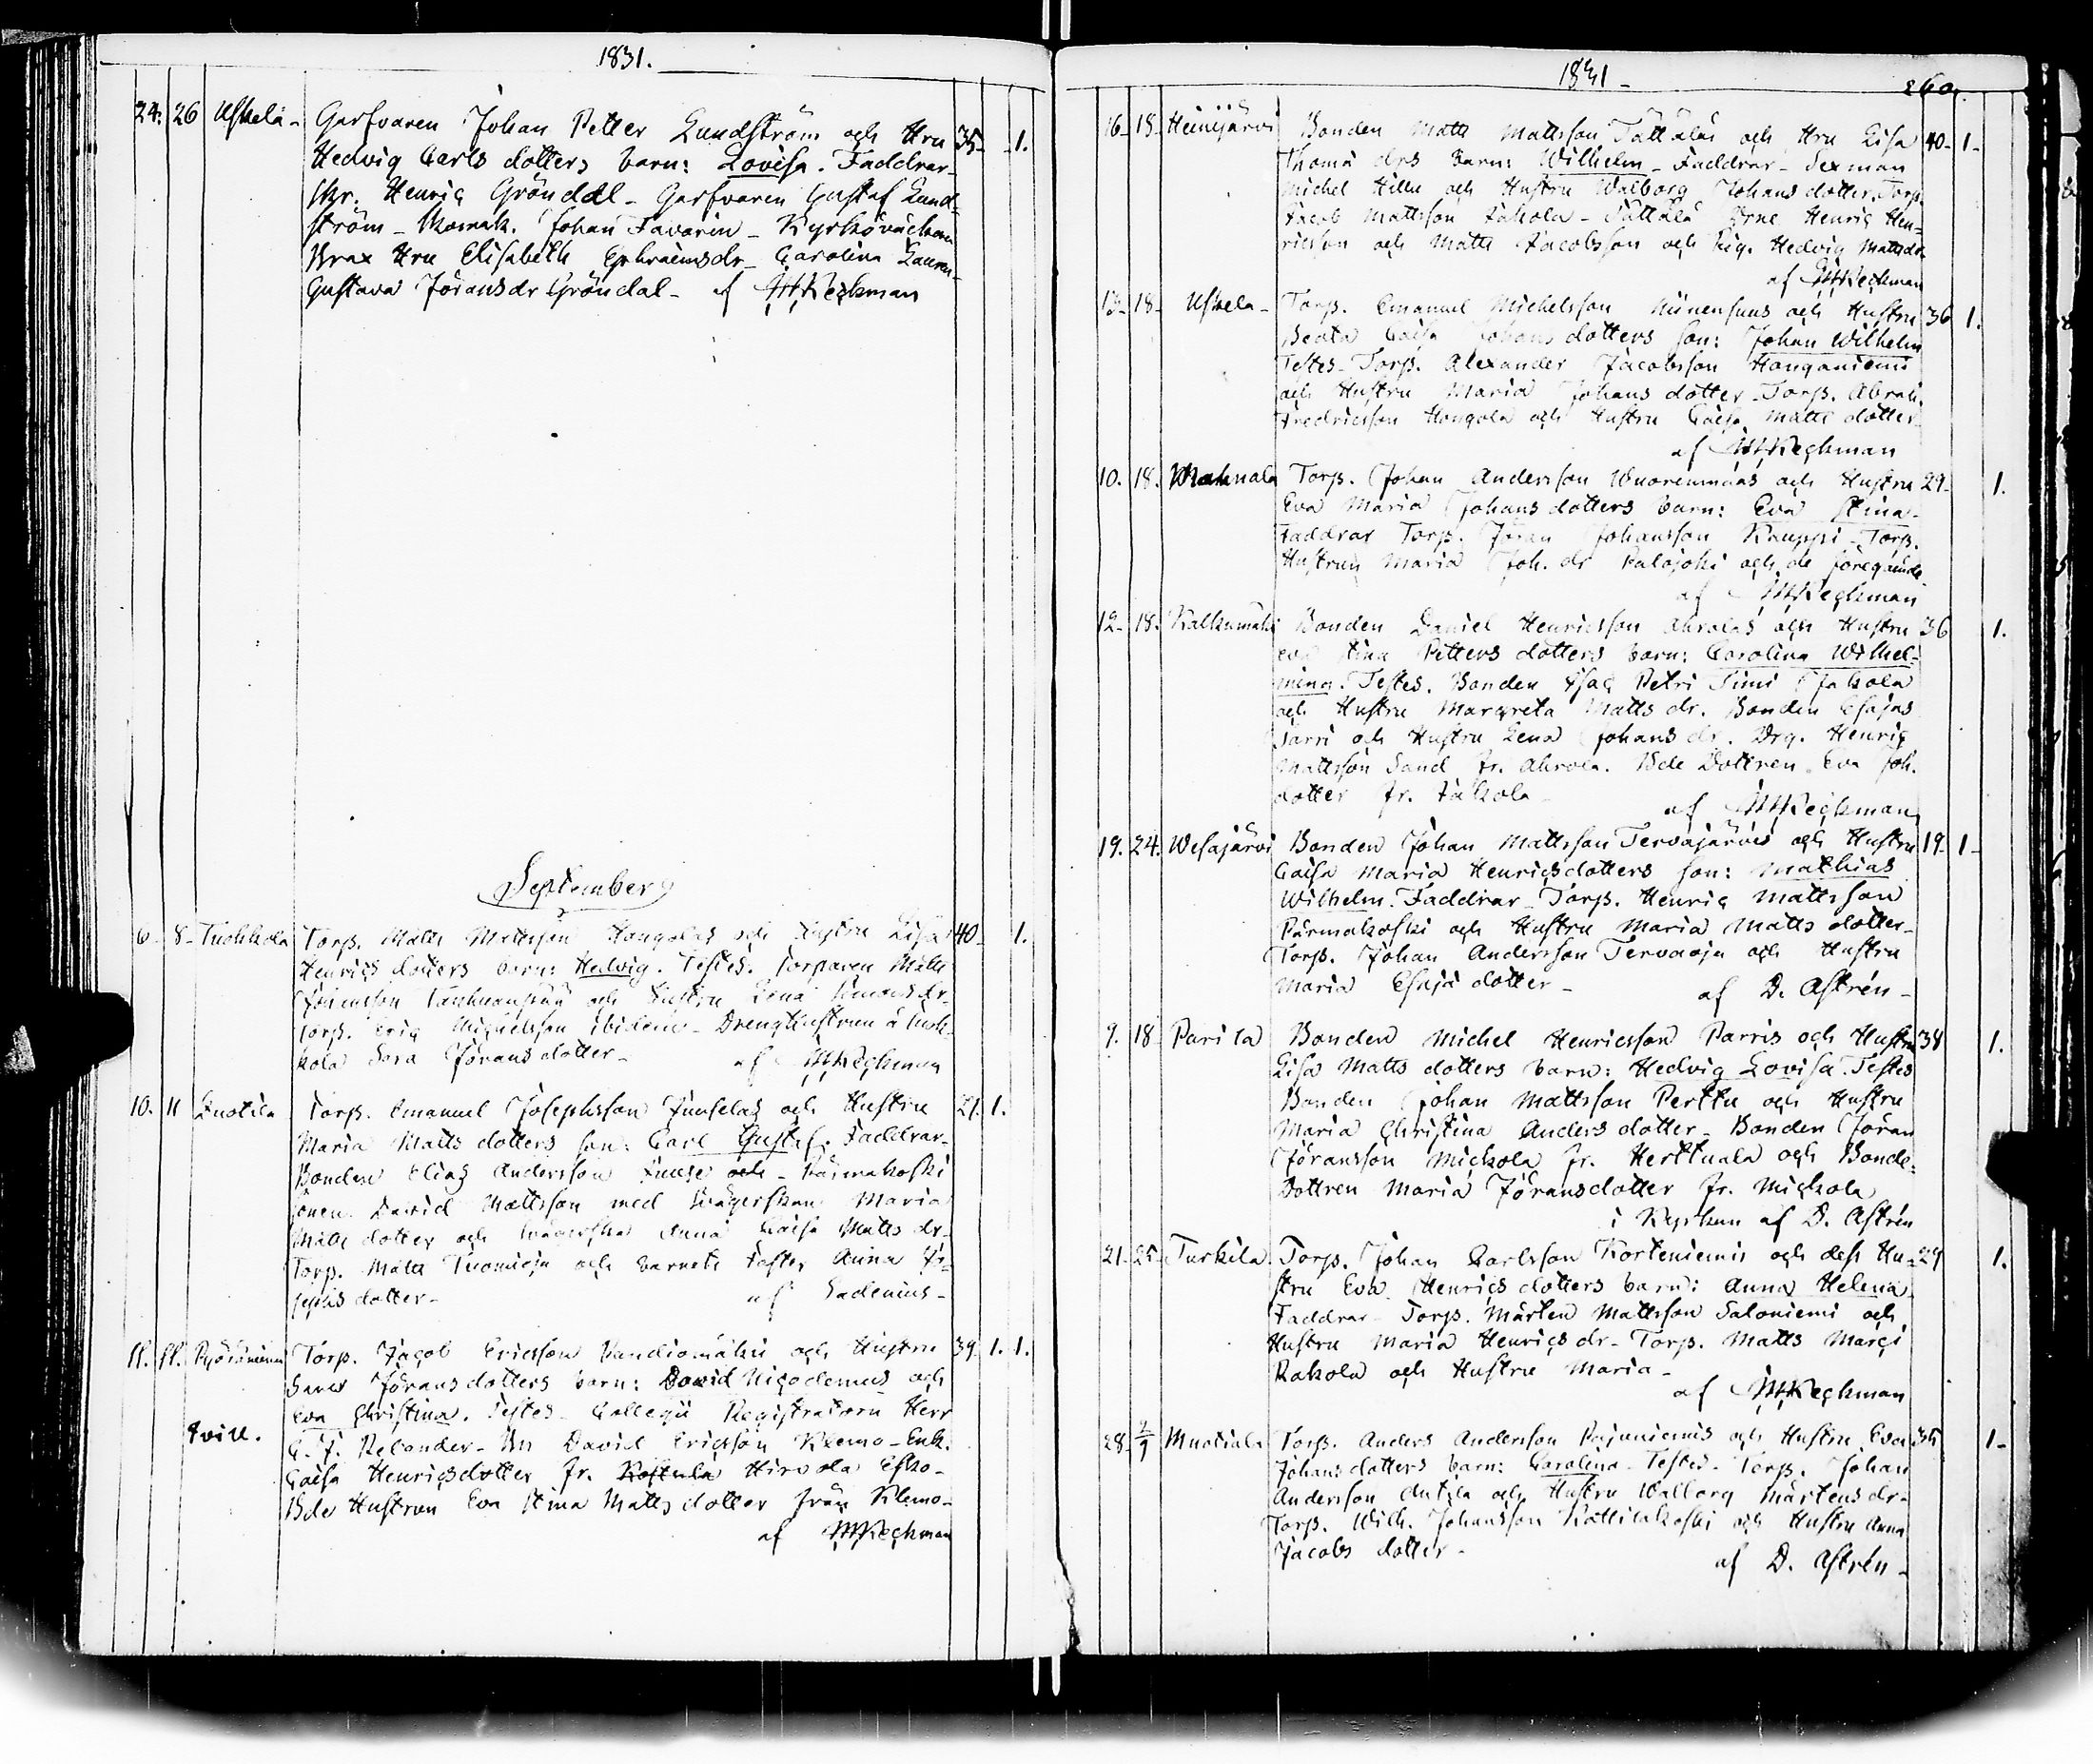 1831.
24. 26 Uskela - Garfvaren Johan Petter Lundström och Hru 35- 1.
Hedvig Carls dotters barn: Lovisa. Faddrar-
Henric Gröndal - Garfvaren Gustaf Lund-
ström - Johan Favorin - Kyrkoväcktaren
Brax Hru Elisabeth Ephraimsdr - Carolina
Gustava Jöransdr Gröndal - af Reckman
September
6- 8- Tuohkola Torp. Matts Mattsson och Hustru Lisa 40- 1.
Henrics dotters barn: Hedvig. Testes. Torparen Matts
och Hustru Lena Simonsdr-
Torp. Eric Michelsson ibidem - Drenghustrun å Tuoh-
kola Sara Jöransdotter - af Reckman
10. 11 Torp. Emanuel Josephsson och Hustru 21. 1.
Maria Matts dotters son: Carl Gustaf. Faddrar-
Bonden Elias Andersson och - Pärmakoski
David Mattsson med Svägerskan Maria
Matts dotter och Svägerska Anna Caisa Matts dr-
Torp. Matts Tuomioja och barnets Faster Anna Jo-
sephs dotter - af
11. 11. Torp. Jacob Ericsson och Hustru 39. 1. 1.
Jöransdotters barn: David Nicodemus och
Eva Christina. Testes - Collegii Registratorn Herr
Tvill.
C. J. Relander - David Ericsson Klemo - Enk.
Caisa Henricsdotter fr. Hirvola
Bde Hustrun Eva Stina Matts dotter från Klemo-
af Reckman
1831 - 260.
16- 18- Heinijärvi Bonden Matts Mattsson Tättäläs och Hru Lisa 40- 1-
Thomæ drs barn: Wilhelm - Faddrar - Sexman
Michel Hille och Hustru Walborg Johans dotter. Torp.
Jacob Mattsson Jakola - Tättälä Henric Hen-
ricsson och Matts Jacobsson och Pig. Hedvig Mattsdr.
af Reckman
13- 18- Uskela - Torp. Emanuel Michelsson och Hustru 36 1.
Beata Caisa Johans dotters son: Johan Wilhelm
Testes - Torp. Alexander Jacobsson Honganiemi
och Hustru Maria Johans dotter - Torp. Abrah.
Fredricsson Hongola och Hustru Caisa Matts dotter-
af Reckman
10. 18. Mahnala Torp. Johan Andersson Wuorenmaas och Hustru 29- 1.
Eva Maria Johans dotters barn: Eva Stina-
Faddrar Torp. Jöran Johansson Kauppi - Torp.
Hustrun Maria Joh. dr Palojoki och de föregående.
af Reckman
12- 18. Kalkunmäki Bonden Daniel Henricsson Ahrolas och Hustru 36 1.
Eva Stina Petters dotters barn: Carolina Wilhel-
mina. Testes. Bonden Isac Petri Simi Jakola
och Hustru Margreta Matts dr. Bonden Esajas
Sarri och Hustru Lena Johans dr. Drg. Henric
Mattsson Sand fr. Ahrola. Bde Dottren Eva Joh.
dotter fr. Jakola - af Reckman
19. 24. Wesajärvi Bonden Johan Mattsson Tervajärvis och Hustru 19- 1-
Caisa Maria Henricsdotters son: Mathias
Wilhelm. Faddrar - Torp. Henric Mattsson
Pärmakoski och Hustru Maria Matts dotter-
Torp. Johan Andersson Tervaoja och Hustru
Maria Esaja dotter - af D. Astrén -
9. 18 Parila Bonden Michel Henricsson Parris och Hustru 38 1.
Lisa Matts dotters barn: Hedvig Lovisa. Testes
Bonden Johan Mattsson Perttu och Hustru
Maria Christina Anders dotter - Bonden Jöran
Jöransson Mickola fr. Herttuala och Bonde-
Dottren Maria Jöransdotter fr. Mickola
i Kyrkan af D. Astrén
21. 25- Turkila. Torp. Johan Carlsson Korteniemis och dess Hu- 29 1.
stru Eva Henrics dotters barn: Anna Helena
Faddrar - Torp. Mårten Mattsson Saloniemi och
Hustru Maria Henrics dr - Torp. Matts Marci
Rakola och Hustru Maria -
af Reckman
28- 2/9 Muotiala Torp. Anders Andersson Pajuniemis och Hustru Eva 35 1-
Johans dotters barn: Carolina - Testes - Torp. Johan
Andersson Antila och Hustru Walborg Mårtens dr-
Torp. Wilh. Johansson och Hustru Anna
Jacobs dotter - af D. Astrén -